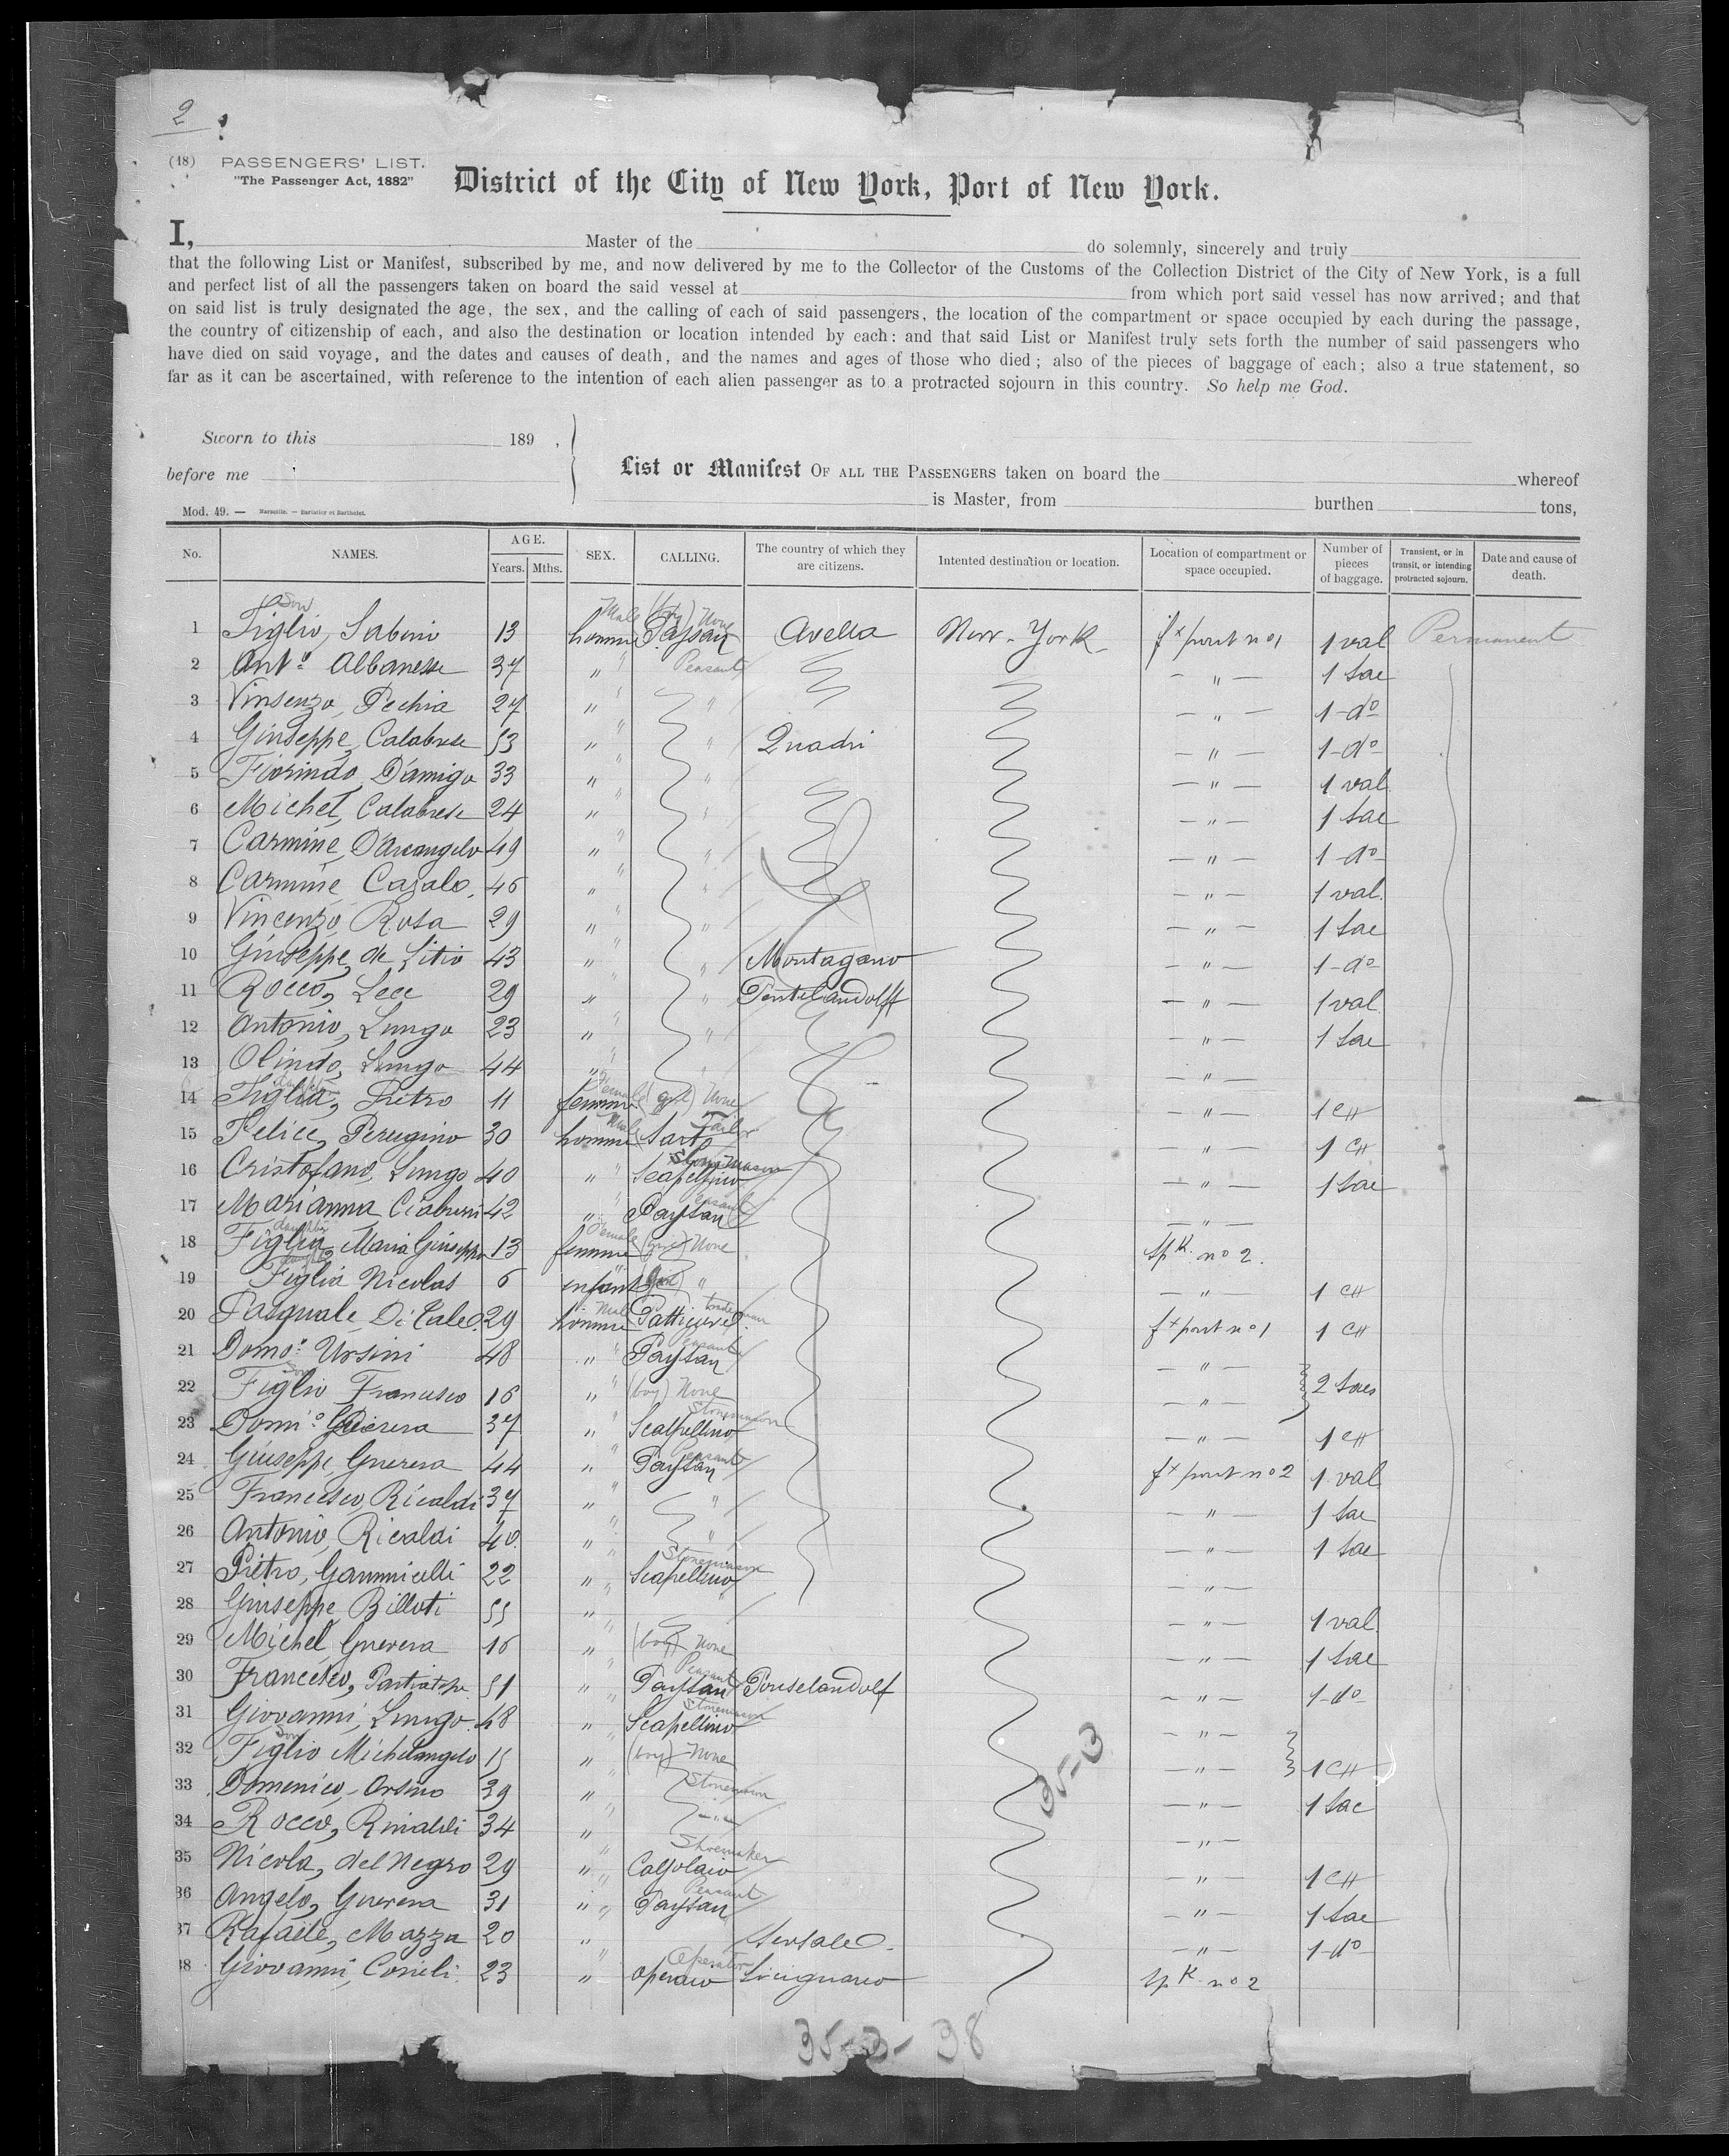 2
(18) PASSENGERS' LIST.
"The Passenger Act, 1882"
District of the City of New York, Port of New York.
I, Master of the do solemnly, sincerely and truly
that the following List or Manifest, subscribed by me, and now delivered by me to the Collector of the Customs of the Collection District of the City of New York, is a full
and perfect list of all the passengers taken on board the said vessel at from which port said vessel has now arrived; and that
on said list is truly designated the age, the sex, and the calling of each of said passengers, the location of the compartment or space occupied by each during the passage,
the country of citizenship of each, and also the destination or location intended by each: and that said List or Manifest truly sets forth the number of said passengers who
have died on said voyage, and the dates and causes of death, and the names and ages of those who died; also of the pieces of baggage of each; also a true statement, so
far as it can be ascertained, with reference to the intention of each alien passenger as to a protracted sojourn in this country. So help me God.
Sworn to this 189 ,
before me
List or Manifest OF ALL THE PASSENGERS taken on board the whereof
is Master, from burthen tons,
Mod. 49. — Marseille. — Barlatier et Barthelet.
No. NAMES. AGE. Years. Mths. SEX. CALLING. The country of which they are citizens. Intented destination or location. Location of compartment or space occupied. Number of pieces of baggage. Transient, or in transit, or intending protracted sojourn. Date and cause of death.
Son Male (boy) None
1 Figlio, Sabino 13 homme Paysan Avella New-York 1 val Permanent
2 Ant° Albanese 37 " Peasant — " — 1 Sac
3 Vinsenzo, Pechia 27 " " — " — 1-d°
4 Giuseppe, Calabrese 53 " " Quadri — " — 1-d°
5 Fiorindo, D'amigo 33 " " — " — 1 val
6 Michel, Calabrese 24 " " — " — 1 Sac
7 Carmine, D'Arcangelo 49 " " — " — 1-d°
8 Carmine Casalo 46 " " — " — 1 val.
9 Vincenzo, Rosa 29 " " — " — 1 Sac
10 Giuseppe, de Litio 43 " " Montagano — " — 1-d°
11 Rocco, Lece 29 " " Pontelandolff — " — 1 val.
12 Antonio, Lungo 23 " " — " — 1 Sac
13 Olindo, Lungo 44 " " — " —
daughter Female
14 Figlia, Pietro 11 femme (girl) None — " — 1 CH
Male Tailor
15 Felice, Perugino 30 homme — " — 1 CH
Stone Mason
16 Cristofano, Lungo 40 " Scapellino — " — 1 Sac
Peasant
17 Marianna 42 " Paysan — " —
daughter Female
18 Figlia Maria Giuseppa 13 femme None Sp K. n° 2.
19 Figlia Nicolas 6 enfant " — " — 1 CH
Male
20 Pasquale, Di Caleo 29 homme 1 CH
Peasant
21 Dom°: Ursini 48 " Paysan — " —
Son
22 Figlio Francesco 16 " (boy) None — " — 2 Sacs
Stonemason
23 Dom°: Guerera 37 " Scalpellino — " — 1 CH
Peasant
24 Giuseppe, Guerera 44 " Paysan 1 val
25 Francesco, Ricaldi 37 " " — " — 1 Sac
26 Antonio, Ricaldi 40 " " — " — 1 Sac
Stonemason
27 Pietro, Gammicelli 22 " Scapellino — " —
28 Giuseppe Billoti 55 " " — " — 1 val.
29 Michel, Guerera 16 " (boy) None — " — 1 Sac
Peasant
30 Francesco, 51 " Paysan Ponselandolf — " — 1-d°
Stonemason
31 Giovanni, Lungo 48 " Scapellino — " —
Son
32 Figlio Michelangelo 15 " (boy) None — " — 1 CH
33 Domenico, Orsino 39 " Stonemason — " — 1 Sac
34 Rocco, Rinaldi 34 " — " — — " —
Shoemaker
35 Nicola, del Negro 29 " Calzolaio — " — 1 CH
Peasant
36 Angelo, Guerera 31 " Paysan — " — 1 Sac
37 Rafaele, Mazza 20 " Sersale — " — 1-d°
Operator
38 Giovanni, 23 " operaio Sp K. n° 2
35-3
35-3-38